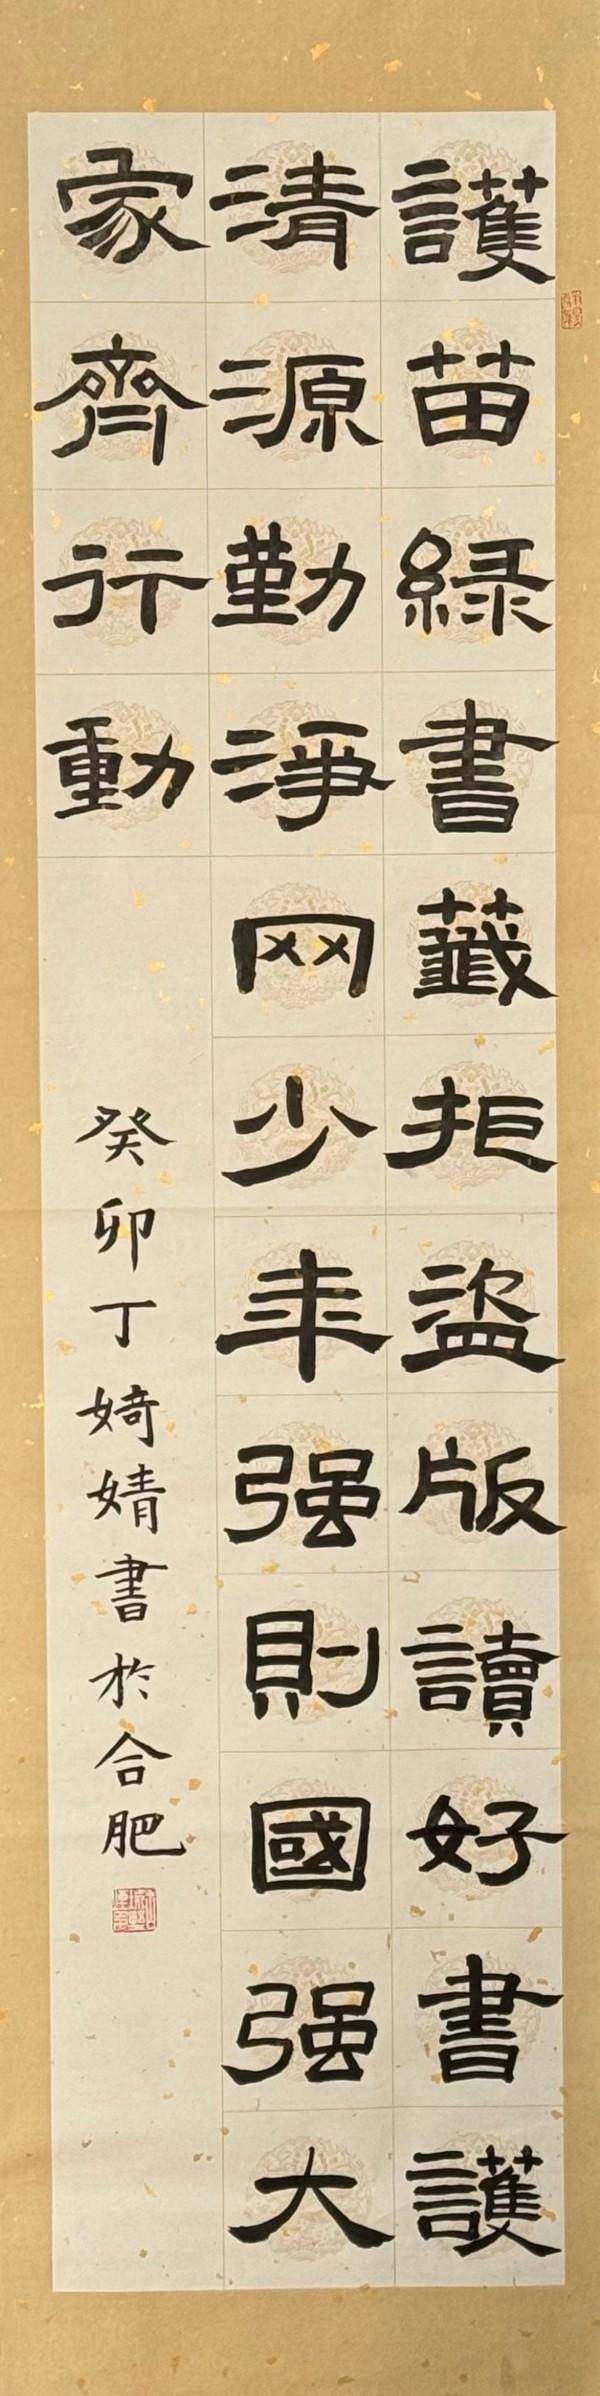 護苗綠書籖拒盜版讀好書護
清源勤淨网少年强則國强大
家齊行動
癸卯丁婍婧書於合肥